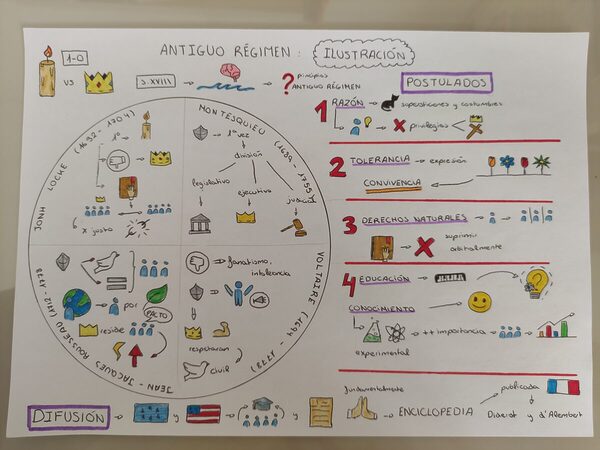 ANTIGUO RÉGIMEN: ILUSTRACIÓN
1-0
VS
S.XVIII
? principios
ANTIGUO RÉGIMEN
POSTULADOS
JONH LOCKE (1632-1704)
1º
x justo
MONTESQUIEU (1689-1755)
1ª vez
división
legislativo
ejecutivo
judicial
JEAN-JACQUES ROUSSEAU (1712-1778)
por
PACTO
reside
VOLTAIRE (1694-1778)
fanatismo,
intolerancia
respetaran
civil
1 RAZÓN
supersticiones y costumbres
x privilegios
2 TOLERANCIA
expresión
CONVIVENCIA
3 DERECHOS NATURALES
X suprimir
arbitralmente
4 EDUCACIÓN
CONOCIMIENTO
++ importancia
experimental
DIFUSIÓN
y
y
fundamentalmente
ENCICLOPEDIA
publicada
Diderot y d'Alembert